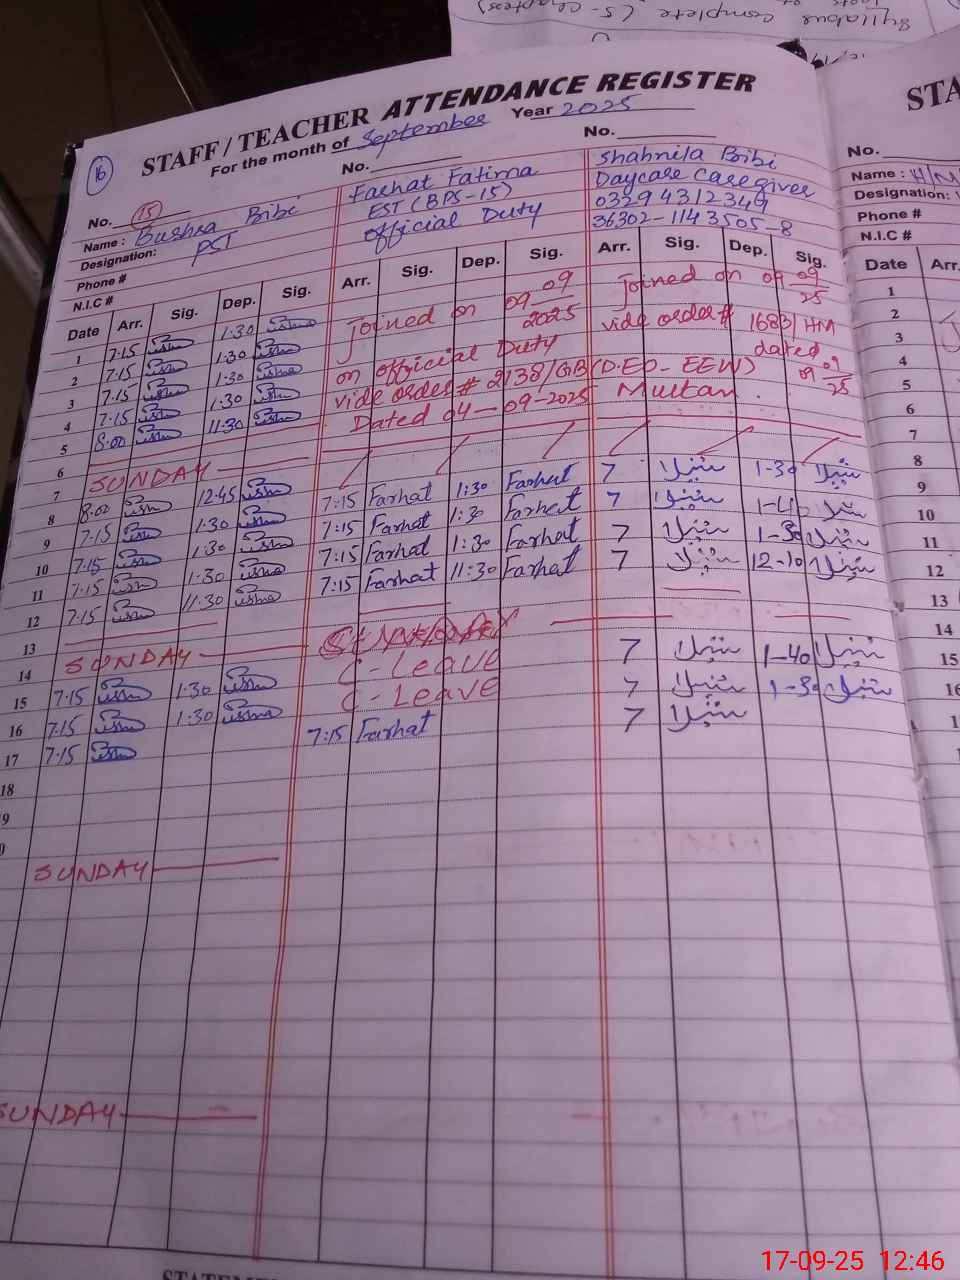 Syllabus complete (5-chapters)
STAFF/TEACHER ATTENDANCE REGISTER
16
For the month of September Year 2025
No. 15 No. No.
Name: Bushra Bibi Farhat Fatima Shahnila Bibi
Designation: PST EST (BPS-15) Daycare Caregiver
Phone # official Duty 0329 4312349
N.I.C # 36302-1143505-8
Date Arr. Sig. Dep. Sig. Arr. Sig. Dep. Sig. Arr. Sig. Dep. Sig.
1 7:15 1:30 Joined on 09-09-2025 Joined on 09-09-25
2 7:15 1:30 on official Duty vide order # 1683/HM
3 7:15 1:30 vide order # 2138/GB (D.EO-EEW) dated 09-09-25
4 7:15 1:30 Dated 04-09-2025 Multan.
5 8:00 11:30
6
7 SUNDAY
8 8:00 12:45 7:15 Farhat 1:30 Farhat 7 شنیلا 1-30 شنیلا
9 7:15 1:30 7:15 Farhat 1:30 Farhat 7 شنیلا 1-40 شنیلا
10 7:15 1:30 7:15 Farhat 1:30 Farhat 7 شنیلا 1-30 شنیلا
11 7:15 1:30 7:15 Farhat 11:30 Farhat 7 شنیلا 12-10 شنیلا
12 7:15 11:30
13
14 SUNDAY SUNDAY
15 7:15 1:30 C-Leave 7 شنیلا 1-40 شنیلا
16 7:15 1:30 C-Leave 7 شنیلا 1-30 شنیلا
17 7:15 7:15 Farhat 7 شنیلا
18
9
0
SUNDAY
SUNDAY
STA
No.
Name:
Designation:
Phone #
N.I.C #
Date Arr.
1
2
3
4
5
6
7
8
9
10
11
12
13
14
15
16
17-09-25 12:46